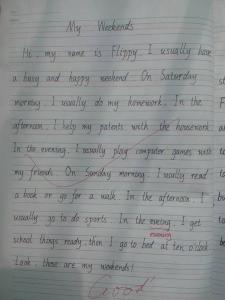 My Weekends
Hi, my name is Flippy. I usually have
a busy and happy weekend. On Saturday
morning, I usually do my homework. In the
afternoon, I help my patents with the housework.
In the evening, I usually play computer games with
my friends. On Sunday morning, I usually read
a book or go for a walk. In the afternoon, I
usually go to do sports. In the evening, I get
evening
school things ready, then I go to bed at ten o'clock
Look, these are my weekends!
Good